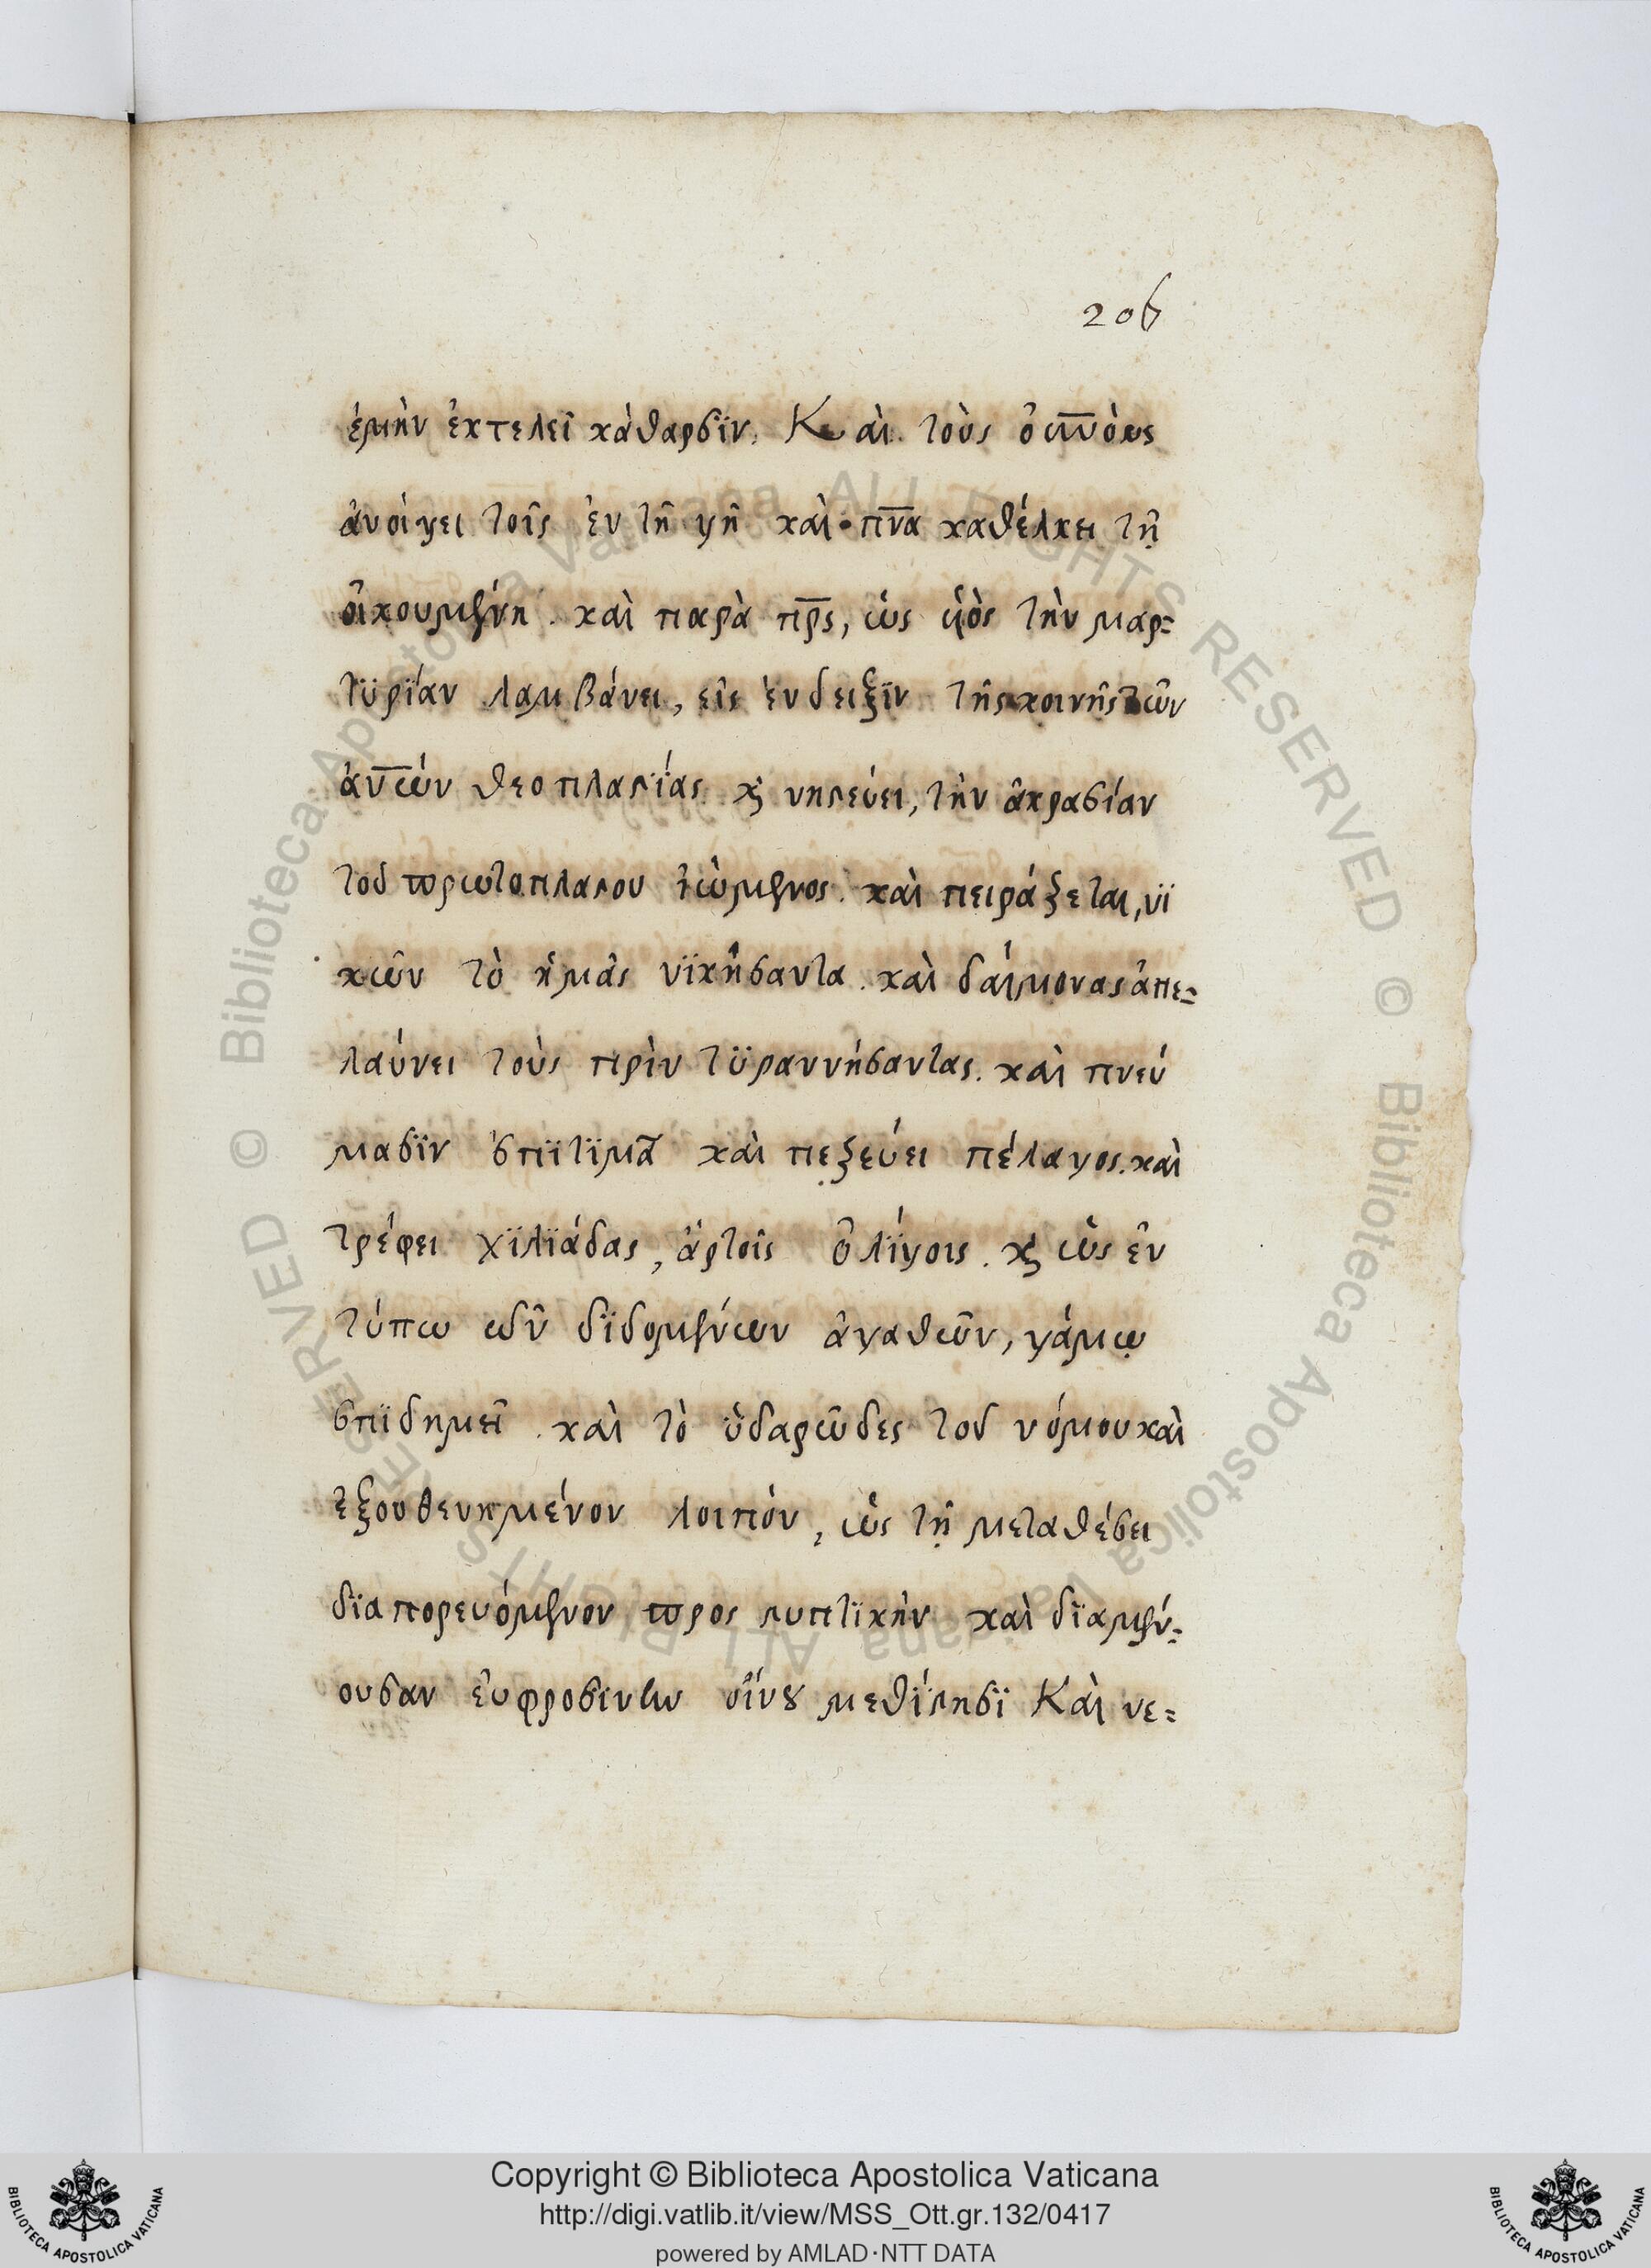 206
ἐμὴν ἐκτελεῖ κὰθαρσϊν. Και τοὺς οὐνοὺς
ἀνοίγει τοῖς ἐν τῆ γῆ καὶ πνα καθέλκει τῇ
οἰκουμένη. καὶ παρὰ πρς, ὡς ὑὸς τὴν μαρ=
τϋρϊαν λαμβάνει, εἰς ἐνδειξϊν τῆς κοινῆς τῶν
ἀνων θεοπλαστίας. κ νηστεύει, τὴν ἀκρασίαν
τοῦ πρωτοπλαστου ἰώμενος. καὶ πειράζεται, νϊ
κῶν τὸ ἡμᾶς νϊκῆσαντα. καὶ δαίμονας ἀπε=
λαύνει τοὺς πρὶν τϋραννήσαντας. καὶ πνεύ
μασϊν ἐπϊτϊμᾶ καὶ πεζεύει πέλαγος. καὶ
τρέφει χϊλϊάδας, ἄρτοις ὀλίγοις. κ ὡς ἐν
τύπω τῶν δϊδομένων ἀγαθῶν, γάμῳ
ἐπϊδημεῖ. καὶ τὸ ὑδαρῶδες τοῦ νόμου καὶ
ἐξουθενημένον λοιπόν, ὡς τῇ μεταθέσει
δϊαπορευόμενον προς στυπτϊκὴν καὶ δϊαμέν=
ουσαν εὐφροσινην οἴνου μεθίστησϊ Καὶ νε=
Copyright © Biblioteca Apostolica Vaticana
http://digi.vatlib.it/view/MSS_Ott.gr.132/0417
powered by AMLAD·NTT DATA
BIBLIOTECA APOSTOLICA VATICANA
BIBLIOTECA APOSTOLICA VATICANA
© Biblioteca Apostolica Vaticana ALL RIGHTS RESERVED
© Biblioteca Apostolica Vaticana ALL RIGHTS RESERVED